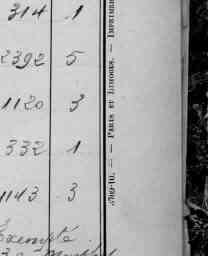 314 1
2392 5
1120 3
332 1
1143 3
Exempté
5769-10. — PARIS ET LIMOGES. — IMPRIMER